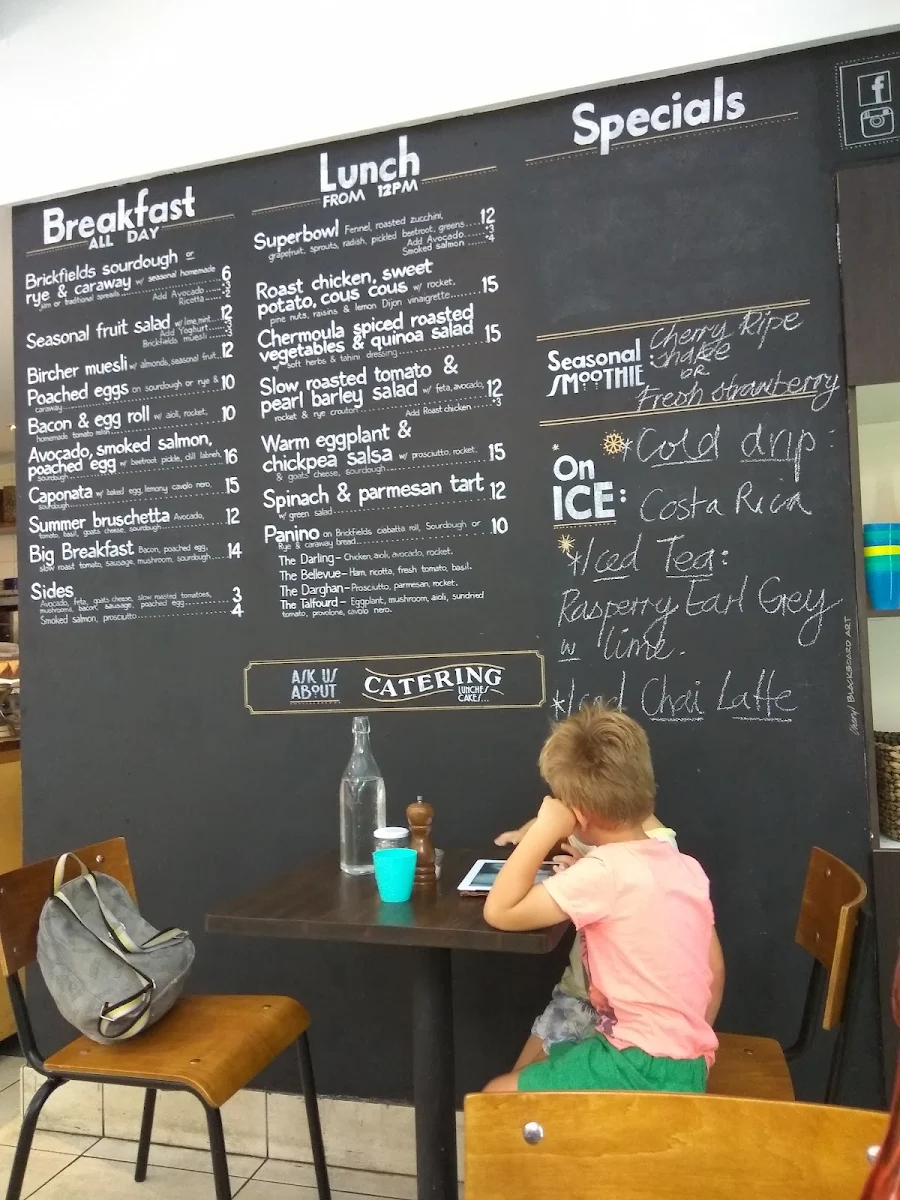 Breakfast
ALL DAY
Brickfields sourdough or
rye & caraway w/ seasonal homemade 6
jam or traditional spreads
Add Avocado
Ricotta
Seasonal fruit salad w/ lime, mint 12
Add Yoghurt
Brickfields muesli
Bircher muesli w/ almonds, seasonal fruit 12
Poached eggs on sourdough or rye & 10
caraway
Bacon & egg roll w/ aioli, rocket, 10
homemade tomato relish
Avocado, smoked salmon,
poached egg w/ beetroot pickle, dill labneh, 16
sourdough
Caponata w/ baked egg, lemony cavolo nero, 15
sourdough
Summer bruschetta Avocado, 12
tomato, basil, goats cheese, sourdough
Big Breakfast Bacon, poached egg, 14
slow roast tomato, sausage, mushroom, sourdough
Sides
Avocado, feta, goats cheese, slow roasted tomatoes, 3
mushrooms, bacon, sausage, poached egg
Smoked salmon, prosciutto 4
Lunch
FROM 12PM
Superbowl Fennel, roasted zucchini, 12
grapefruit, sprouts, radish, pickled beetroot, greens
Add Avocado 3
Smoked salmon 4
Roast chicken, sweet
potato, cous cous w/ rocket, 15
pine nuts, raisins & lemon Dijon vinaigrette
Chermoula spiced roasted
vegetables & quinoa salad 15
w/ soft herbs & tahini dressing
Slow roasted tomato &
pearl barley salad w/ feta, avocado, 12
rocket & rye crouton
Add Roast chicken 3
Warm eggplant &
chickpea salsa w/ prosciutto, rocket, 15
& goats cheese, sourdough
Spinach & parmesan tart 12
w/ green salad
Panino on Brickfields ciabatta roll, Sourdough or 10
Rye & caraway bread
The Darling - Chicken, aioli, avocado, rocket.
The Bellevue - Ham, ricotta, fresh tomato, basil.
The Darghan - Prosciutto, parmesan, rocket.
The Talfourd - Eggplant, mushroom, aioli, sundried
tomato, provolone, cavolo nero.
ASK US
ABOUT
CATERING
LUNCHES
CAKES...
Specials
Seasonal
SMOOTHIE
: Cherry Ripe
shake
OR
Fresh strawberry
On
ICE:
*Cold drip:
Costa Rica
*Iced Tea:
Rasperry Earl Grey
w lime.
*Iced Chai Latte
BLACKBOARD ART